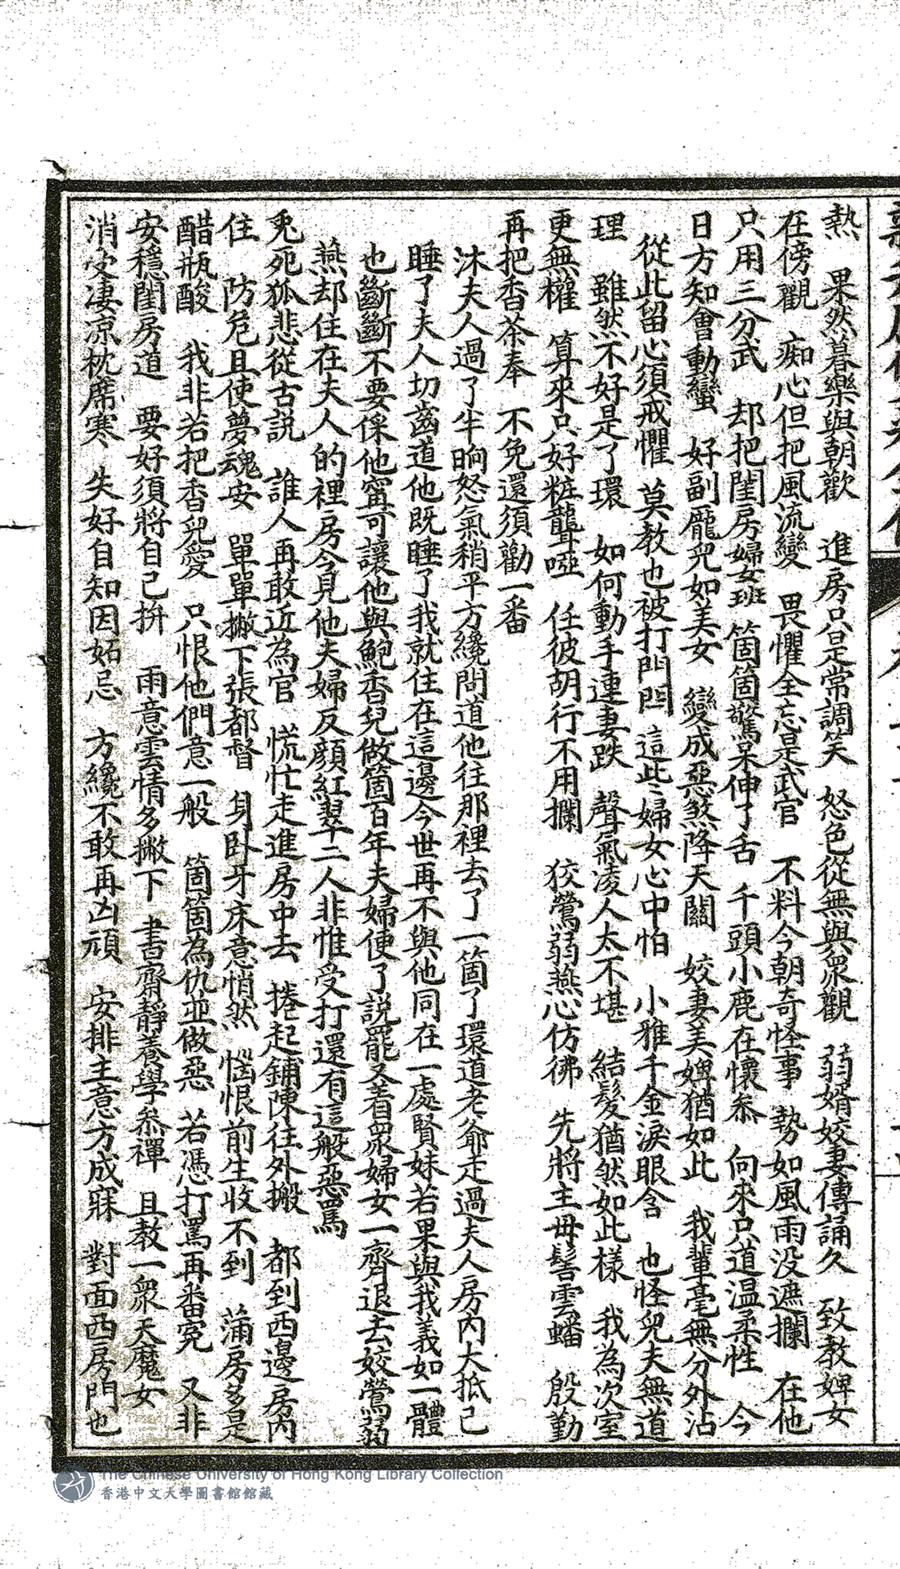 熱　果然暮樂與朝歡　進房只是常調笑　怒色從無與衆觀　弱婿姣妻傳誦久　致教婢女
在傍觀　痴心但把風流變　畏懼全忘是武官　不料今朝奇怪事　勢如風雨没遮攔　在他
只用三分武　却把閨房婦女班　箇箇驚呆伸了舌　千頭小鹿在懷叅　向來只道温柔性　今
日方知會動蠻　好副龎兒如美女　變成惡煞降天關　姣妻美婢猶如此　我輩毫無分外沾
從此留心須戒懼　莫教也被打門閂　這些婦女心中怕　小雅千金淚眼含　也怪兒夫無道
理　雖然不好是了環　如何動手連妻跌　聲氣凌人太不堪　結髮猶然如此樣　我為次室
更無權　算來只好粧聾啞　任彼胡行不用攔　狡鶯弱燕心仿彿　先將主毋髻雲蟠　殷勤
再把香茶奉　不免還須勸一番
沐夫人過了半晌怒氣稍平方纔問道他往那裡去了一箇了環道老爺走過夫人房內大抵已
睡了夫人切齒道他既睡了我就住在這邊今世再不與他同在一處賢妹若果與我義如一體
也斷斷不要倸他寗可讓他與鮑香兒做箇百年夫婦便了說罷又着衆婦女一齊退去姣鶯弱
燕却住在夫人的裡房今見他夫婦反顔紅翠二人非惟受打還有這般惡罵
兎死狐悲從古説　誰人再敢近為官　慌忙走進房中去　捲起鋪陳往外搬　都到西邊房内
住　防危且使夢魂安　單單撇下張都督　身卧牙床意悄然　惱恨前生收不到　蒲房多是
醋瓶酸　我非若把香兒愛　只恨他們意一般　箇箇為仇並做惡　若憑打罵再番寃　又非
安穩閨房道　要好須將自己拚　雨意雲情多撇下　書齋靜養學叅禪　且教一衆天魔女
消受凄凉枕席寒　失好自知因妬忌　方纔不敢再凶頑　安排主意方成寐　對面西房門也
The Chinese University of Hong Kong Library Collection
香港中文大學圖書館館藏